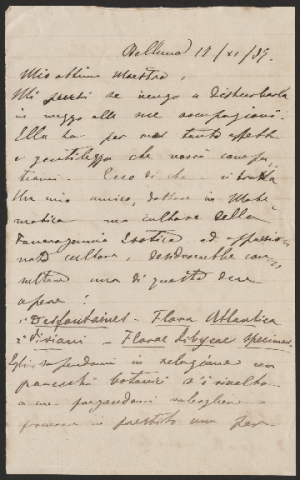 Belluno 18/XI/89.
Mio ottimo Maestro,
Mi scusi se vengo a disturbarla
in mezzo alle sue occupazioni.
Ella ha per me tanto affetto
e gentilezza che vorrà compa-
tirmi. Ecco di che si tratta
Un mio amico, dottore in Mate-
matica ma cultore della
Fanerogamia Esotica ed appassio-
nato cultore, desidererebbe con-
sultare una di queste due
opere:
1° Desfontaines - Flora Atlantica
2° Viviani - Florae Libycae specimen.
Egli in relazione con
parecchi botanici si rivolse
a me pregandomi
in prestito una per-